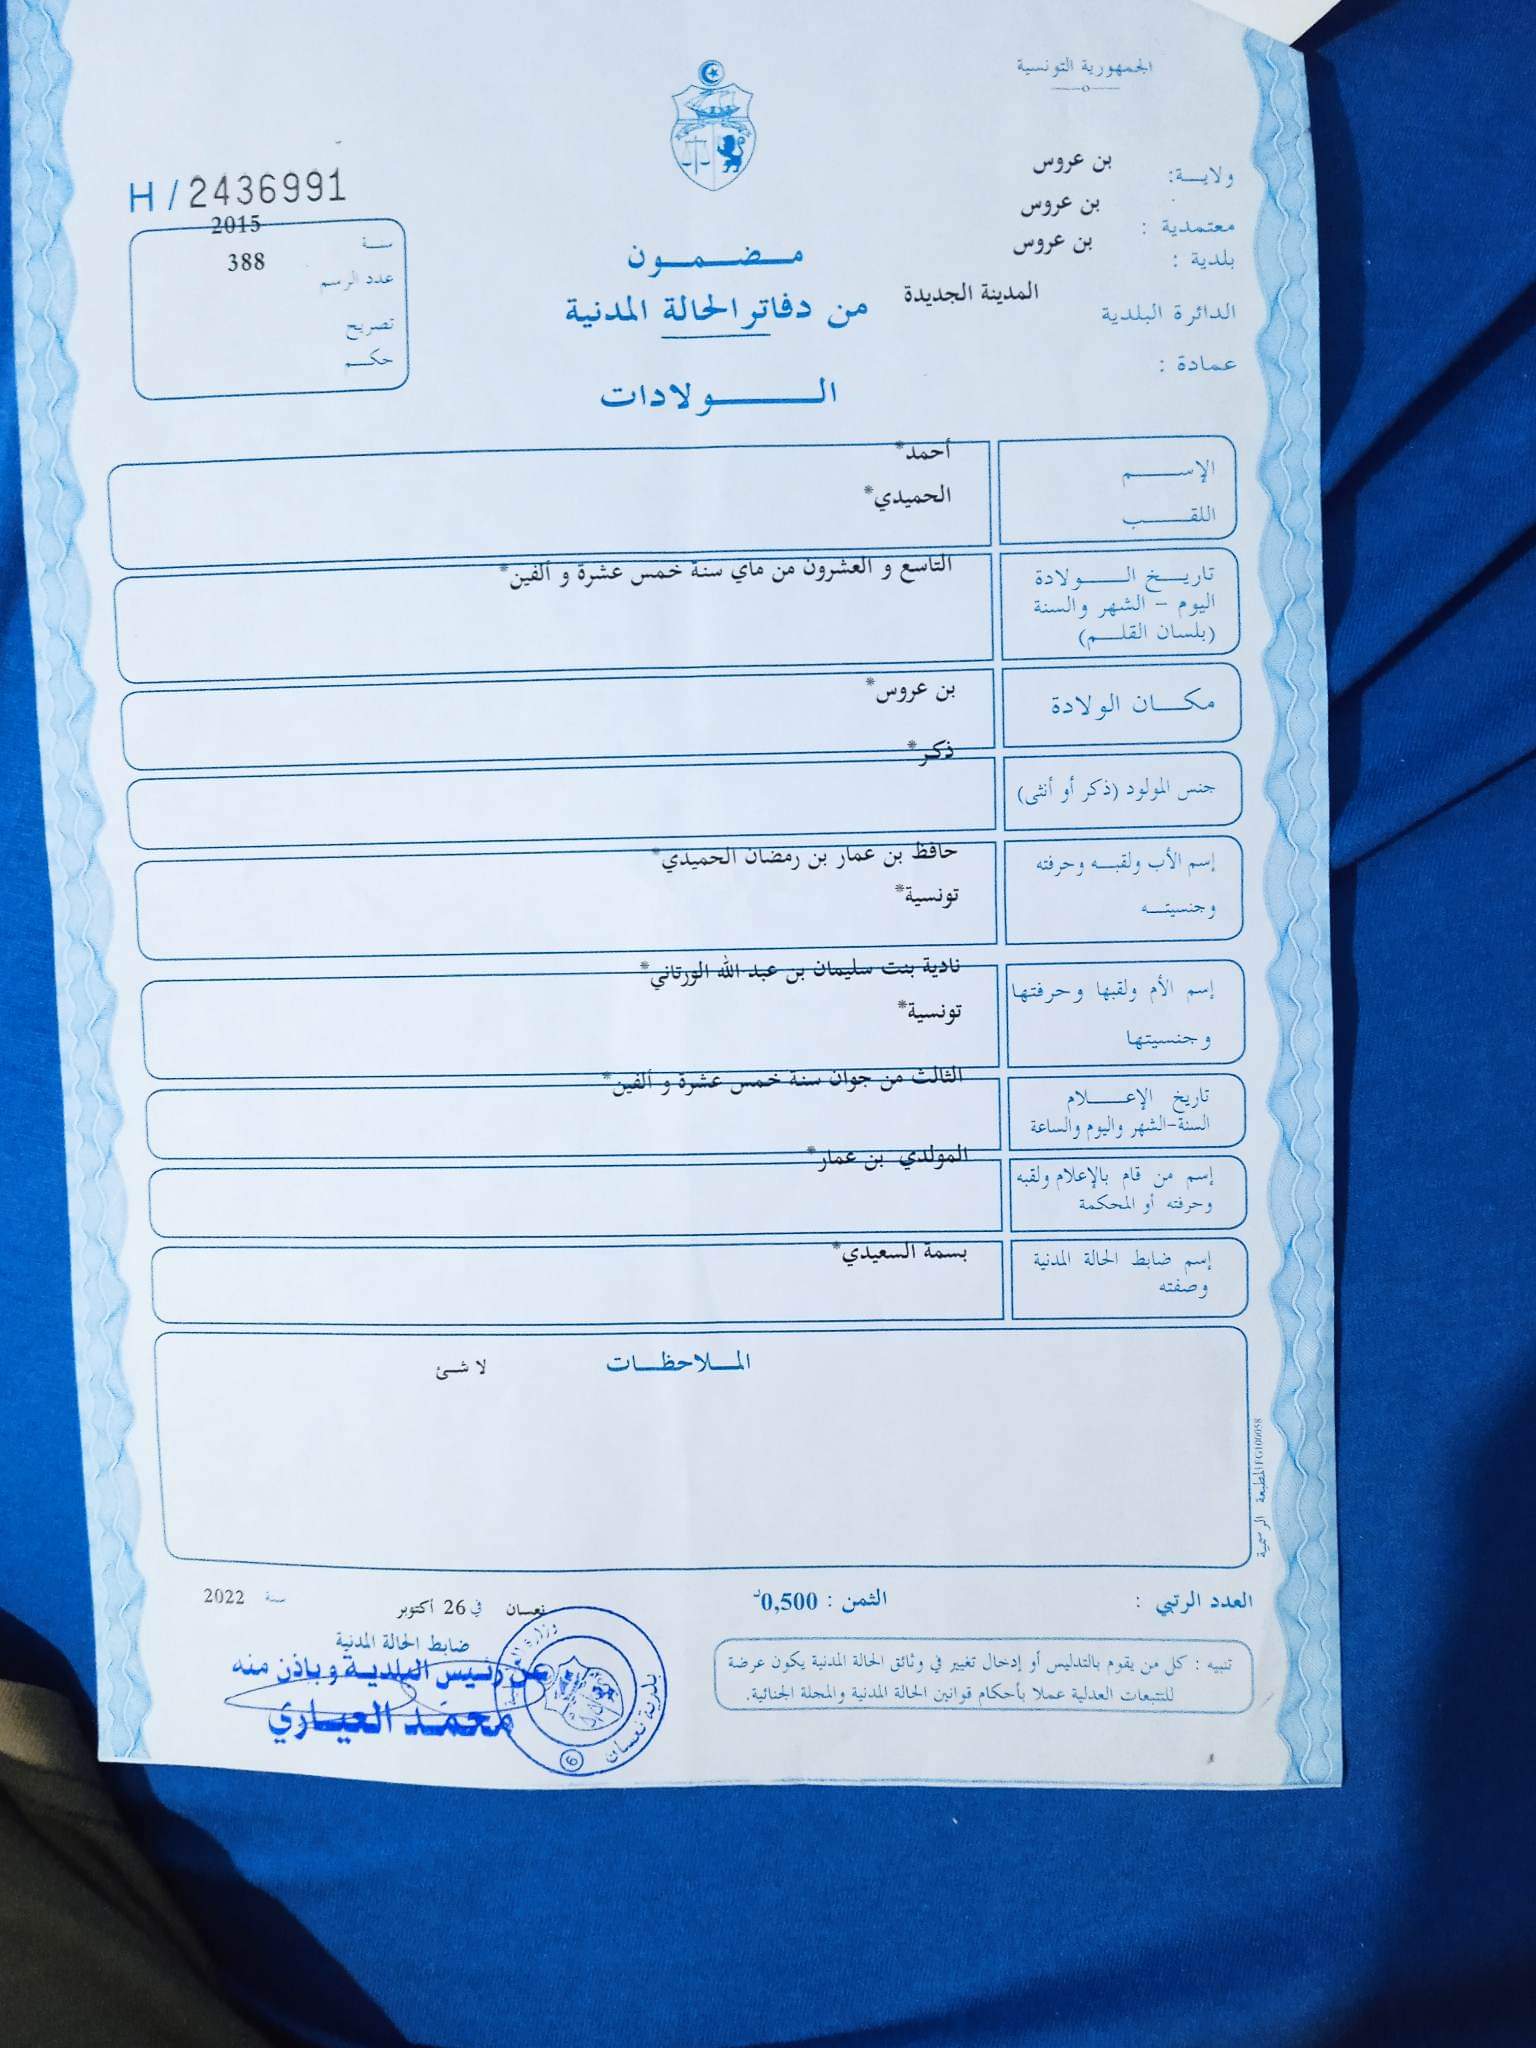 الجمهورية التونسية
ولايـــة: بن عروس
معتمدية : بن عروس
بلدية : بن عروس
الدائرة البلدية المدينة الجديدة
عمادة :
H / 2436991
سنة 2015
عدد الرسم 388
تصريح
حكم
مضمون
من دفاتر الحالة المدنية
الولادات
الإسم أحمد*
اللقب الحميدي*
تاريخ الولادة التاسع و العشرون من ماي سنة خمس عشرة و ألفين*
اليوم - الشهر والسنة
(بلسان القلم)
مكان الولادة بن عروس*
جنس المولود (ذكر أو أنثى) ذكر*
إسم الأب ولقبه وحرفته حافظ بن عمار بن رمضان الحميدي*
وجنسيته تونسية*
إسم الأم ولقبها وحرفتها نادية بنت سليمان بن عبد الله الورتاني*
وجنسيتها تونسية*
تاريخ الإعلام الثالث من جوان سنة خمس عشرة و ألفين*
السنة-الشهر واليوم والساعة
إسم من قام بالإعلام ولقبه المولدي بن عمار*
وحرفته أو المحكمة
إسم ضابط الحالة المدنية بسمة السعيدي*
وصفته
الملاحظات لا شئ
المطبعة الرسمية FG100058
العدد الرتبي : الثمن : 0,500د
نعسان في 26 أكتوبر سنة 2022
تنبيه : كل من يقوم بالتدليس أو إدخال تغيير في وثائق الحالة المدنية يكون عرضة
للتتبعات العدلية عملا بأحكام قوانين الحالة المدنية والمجلة الجنائية.
ضابط الحالة المدنية
عن رئيس البلدية وبإذن منه
محمد العياري
بلدية نعسان
6